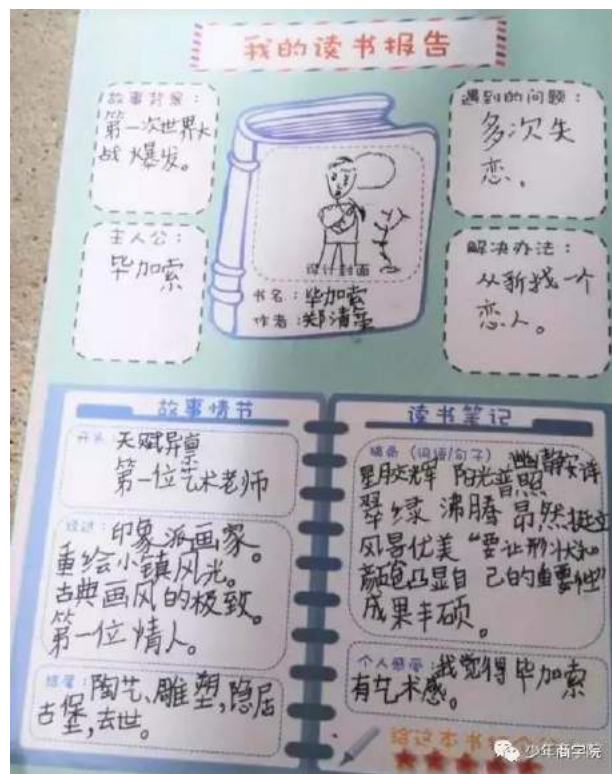 我的读书报告
故事背景：
第一次世界大
战爆发。
主人公：
毕加索
设计封面
书名：毕加索
作者：郑清荣
遇到的问题：
多次失
恋，
解决办法：
从新找一个
恋人。
故事情节
开头：天赋异禀
第一位艺术老师
经过：印象派画家。
重绘小镇风光。
古典画风的极致。
第一位情人。
结尾：陶艺、雕塑，隐居
古堡，去世。
读书笔记
摘录（词语/句子）幽静安详
星月交辉 阳光普照
翠绿 沸腾 昂然挺立
风景优美 “要让形状和
颜色凸显自己的重要性”
成果丰硕。
个人感受：我觉得毕加索
有艺术感。
给这本书
少年商学院